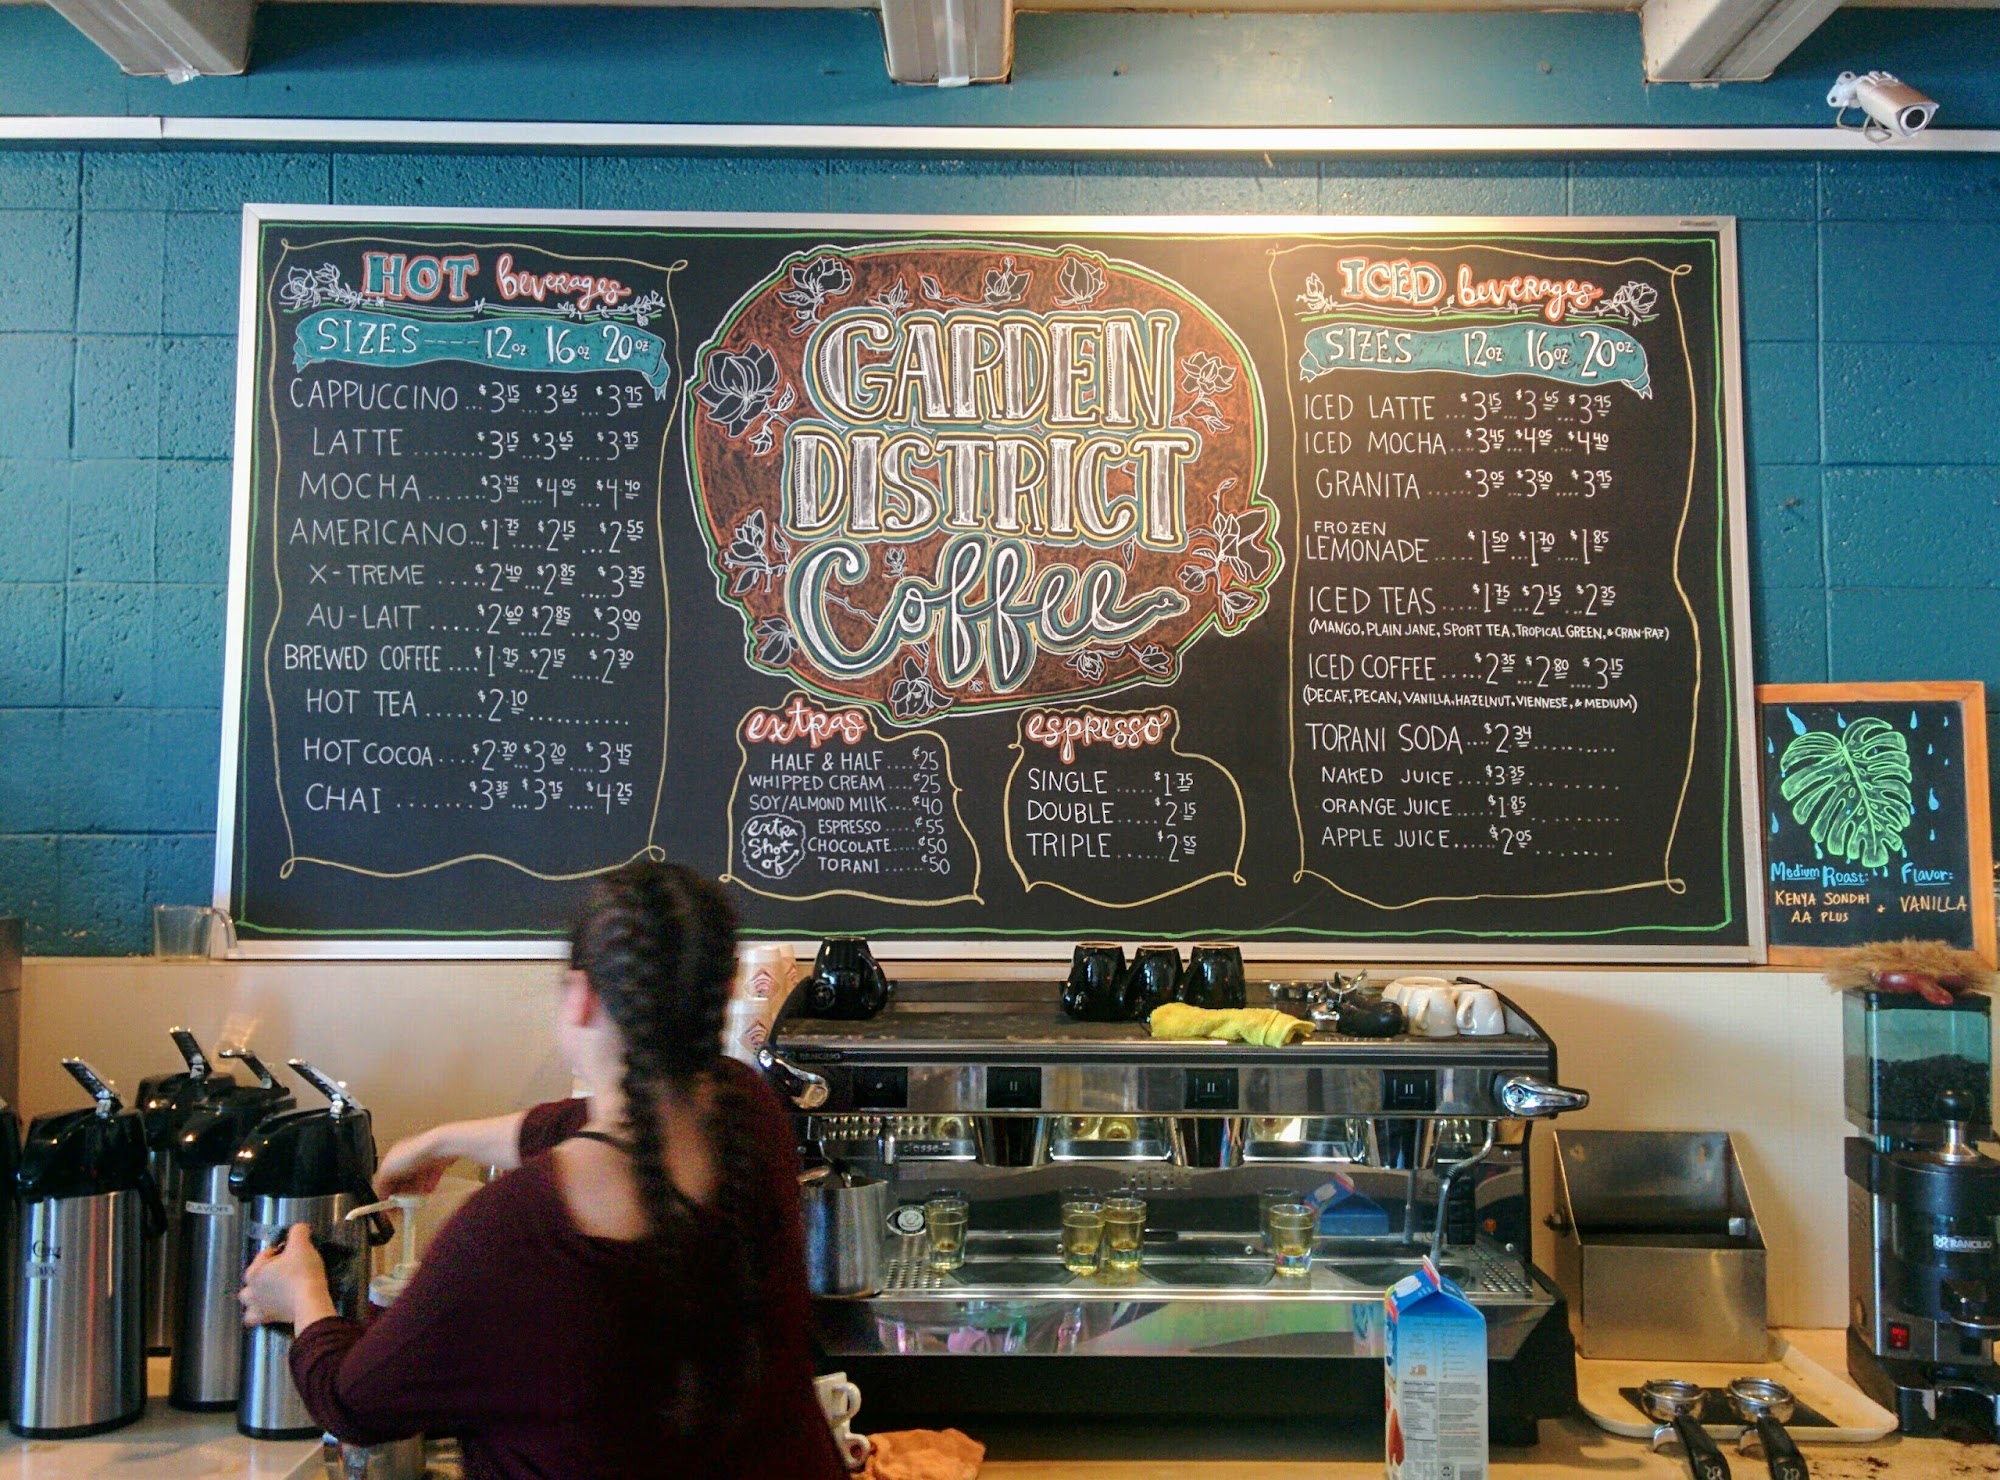 HOT beverages
SIZES ---- 12oz 16oz 20oz
CAPPUCCINO ... $3.15 ... $3.65 ... $3.95
LATTE ....... $3.15 ... $3.65 ... $3.95
MOCHA ...... $3.45 ... $4.05 ... $4.40
AMERICANO ... $1.75 .... $2.15 ... $2.55
X-TREME ..... $2.40 ... $2.85 .... $3.35
AU-LAIT ..... $2.60 ... $2.85 .... $3.00
BREWED COFFEE .... $1.95 ... $2.15 .... $2.30
HOT TEA ...... $2.10 ...........
HOT COCOA .... $2.70 ... $3.20 ... $3.45
CHAI ........ $3.35 ... $3.95 ... $4.25
GARDEN
DISTRICT
Coffee
extras
HALF & HALF .... ¢25
WHIPPED CREAM .... ¢25
SOY/ALMOND MILK .... ¢40
extra shot of
ESPRESSO ..... ¢55
CHOCOLATE .... ¢50
TORANI ...... ¢50
espresso
SINGLE ..... $1.75
DOUBLE ..... $2.15
TRIPLE ..... $2.55
ICED beverages
SIZES 12oz 16oz 20oz
ICED LATTE ... $3.15 ... $3.65 ... $3.95
ICED MOCHA .. $3.45 .. $4.05 ... $4.40
GRANITA ..... $3.05 ... $3.50 .... $3.95
FROZEN
LEMONADE ..... $1.50 ... $1.70 ... $1.85
ICED TEAS .... $1.75 ... $2.15 ... $2.35
(MANGO, PLAIN JANE, SPORT TEA, TROPICAL GREEN, & CRAN-RAZ)
ICED COFFEE .... $2.35 ... $2.80 .... $3.15
(DECAF, PECAN, VANILLA, HAZELNUT, VIENNESE, & MEDIUM)
TORANI SODA .... $2.34 ..........
NAKED JUICE .... $3.35 ...........
ORANGE JUICE .... $1.85 ..........
APPLE JUICE ..... $2.05 ........
Medium Roast: Flavor:
KENYA SONDHI + VANILLA
AA PLUS
RANCILIO
FLAVOR
classe-7
RANCILIO